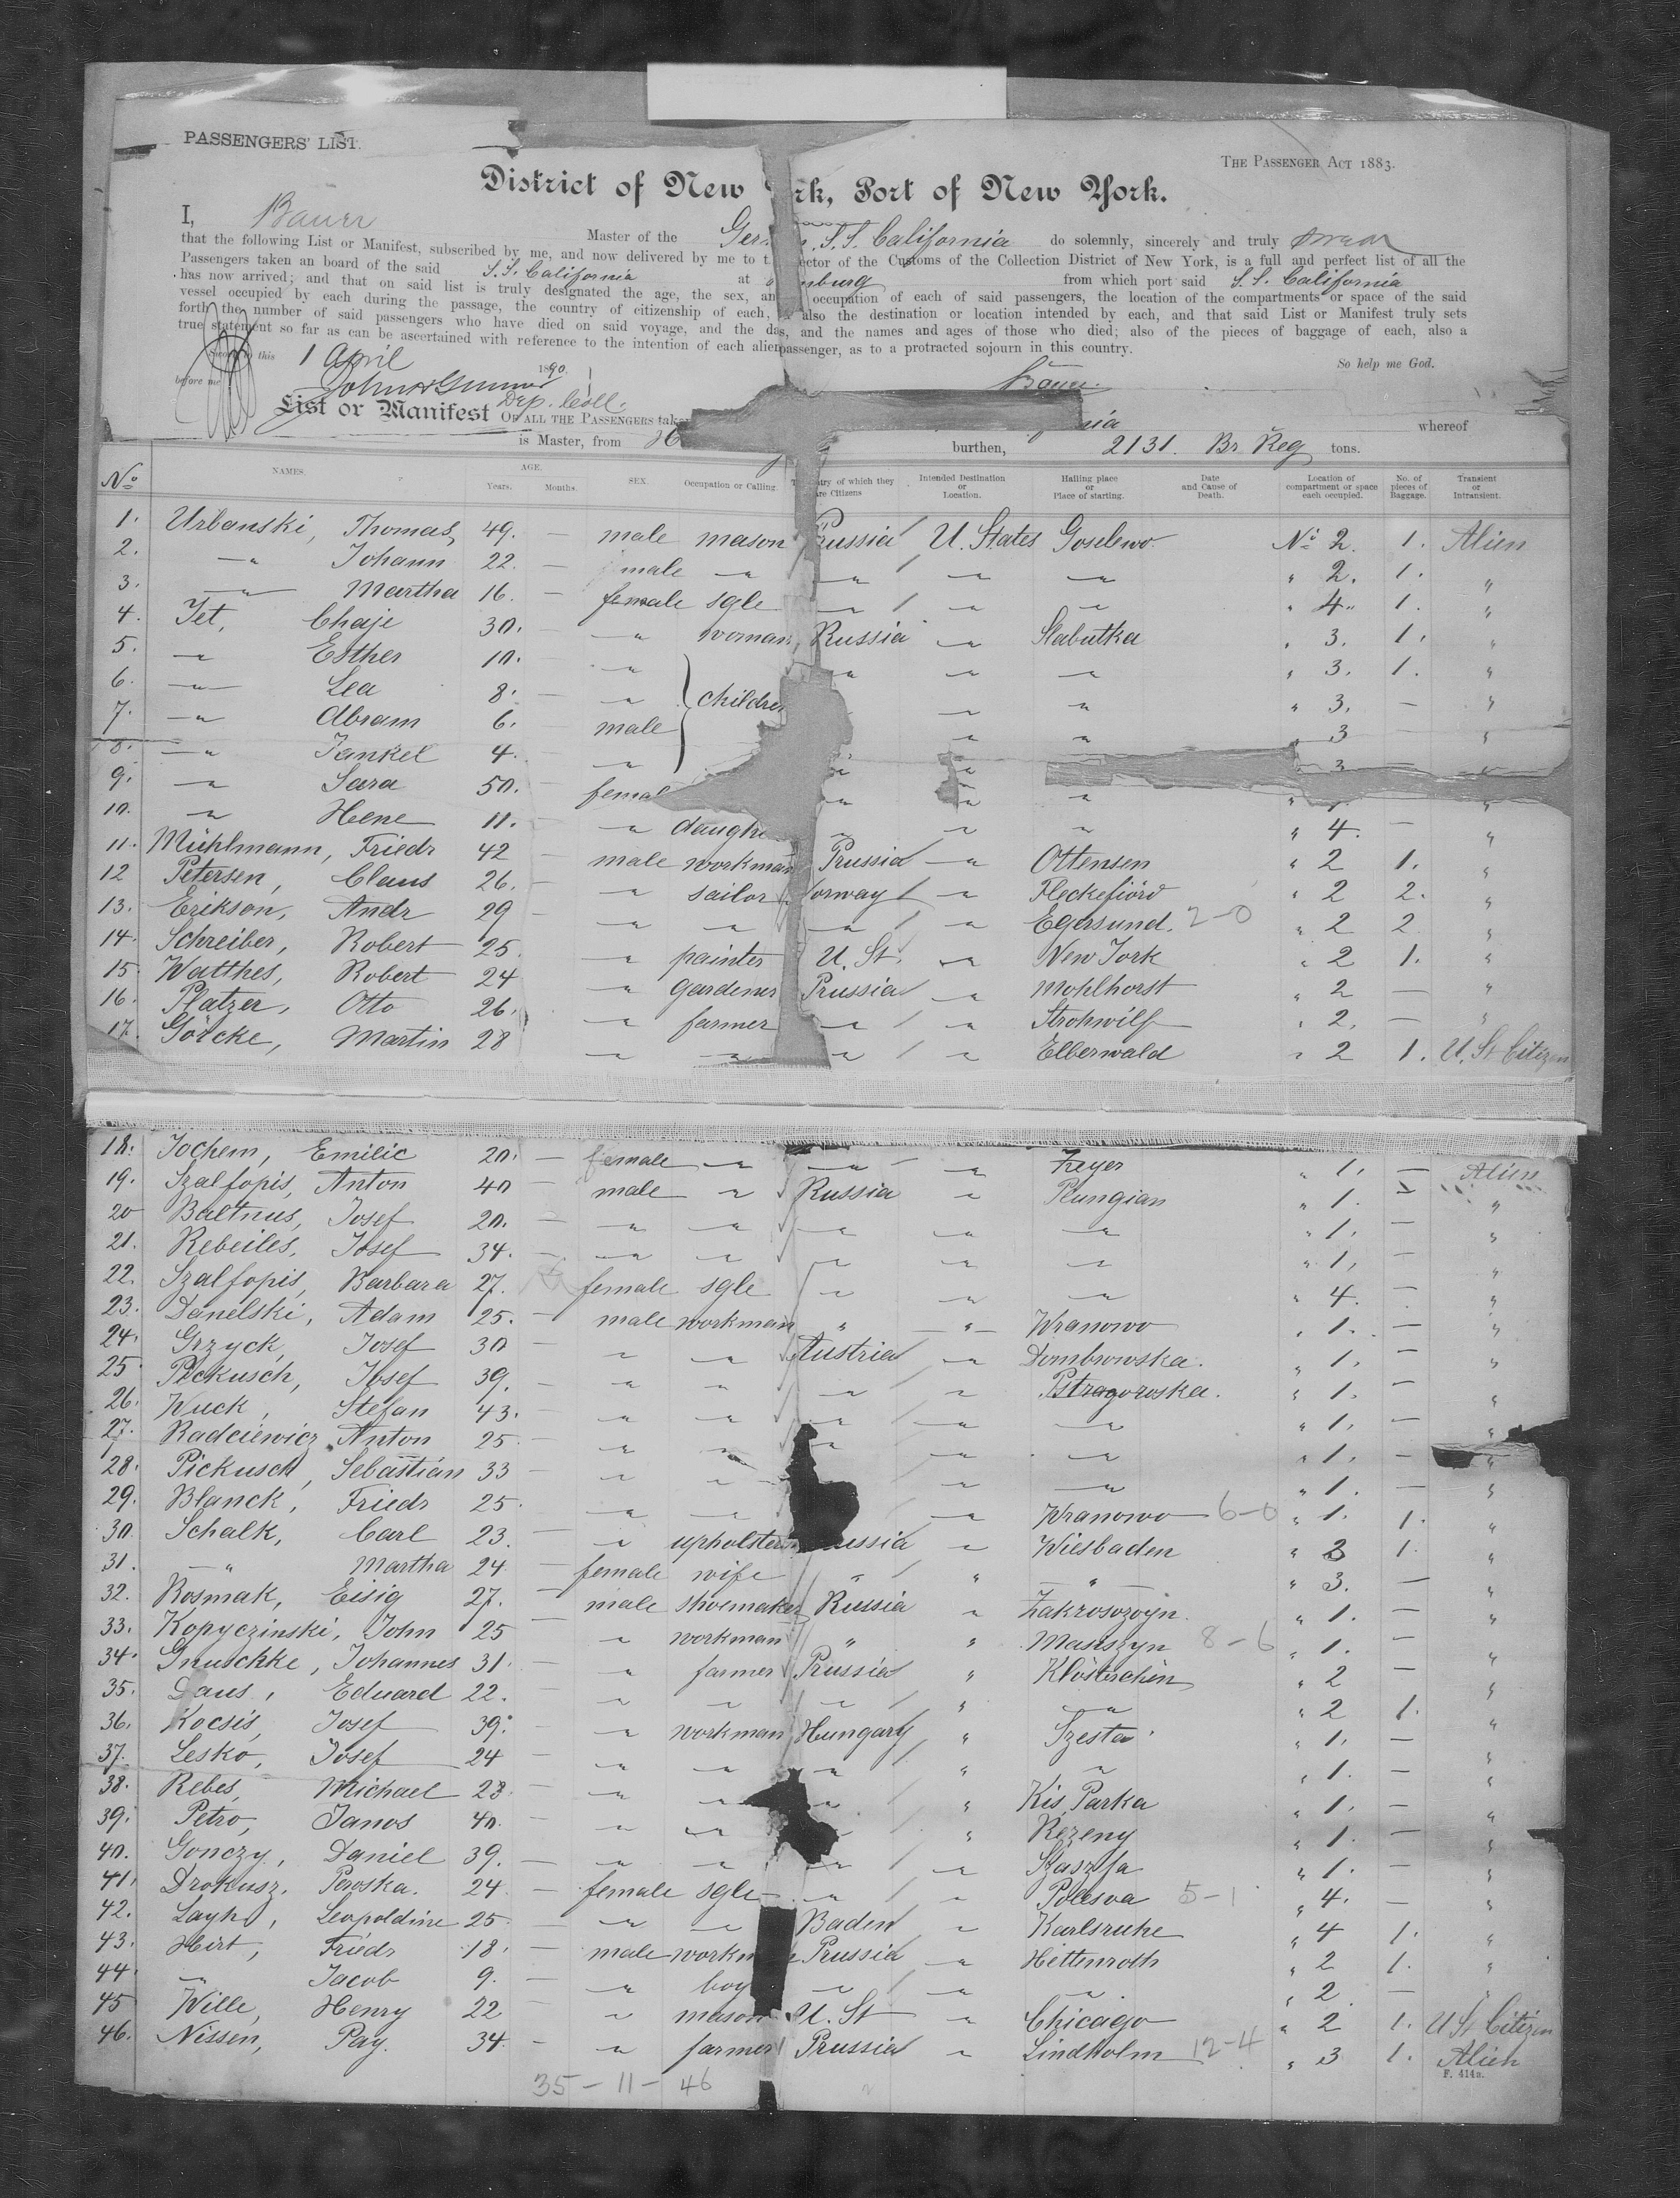 PASSENGERS' LIST.
THE PASSENGER ACT 1883.
District of New rk, Port of New York.
I, Bauer Master of the Ger S.S. California do solemnly, sincerely and truly swear
that the following List or Manifest, subscribed by me, and now delivered by me to t ector of the Customs of the Collection District of New York, is a full and perfect list of all the
Passengers taken an board of the said S.S. California at nburg from which port said S.S. California
has now arrived; and that on said list is truly designated the age, the sex, an occupation of each of said passengers, the location of the compartments or space of the said
vessel occupied by each during the passage, the country of citizenship of each, also the destination or location intended by each, and that said List or Manifest truly sets
forth the number of said passengers who have died on said voyage, and the da s, and the names and ages of those who died; also of the pieces of baggage of each, also a
true statement so far as can be ascertained with reference to the intention of each alien passenger, as to a protracted sojourn in this country.
this 1 April 1890. So help me God.
before me Bauer.
Dep. Coll.
List or Manifest OF ALL THE PASSENGERS take nia whereof
is Master, from H burthen, 2131. Br. Reg tons.
No NAMES. AGE. Years. Months. SEX. Occupation or Calling. ntry of which they are Citizens Intended Destination or Location. Hailing place or Place of starting. Date and Cause of Death. Location of compartment or space each occupied. No. of pieces of Baggage. Transient or Intransient.
1. Urbanski, Thomas, 49. — male mason Prussia U. States Goselewo. No 2. 1. Alien
2. —"— Johann 22. — male —"— —"— —"— —"— " 2. 1. "
3. —"— Martha 16. — female sgle —"— —"— —"— " 4. 1. "
4. Jet, Chaje 30. — —"— woman, Russia —"— Slabutka " 3. 1. "
5. —"— Esther 10. — —"— —"— —"— —"— " 3. 1. "
6. —"— Lea 8. — —"— children —"— —"— " 3. — "
7. —"— Abram 6. male —"— —"— " 3 — "
8. —"— Jankel 4. —"— " —"— 3
9. —"— Sara 50. — femal " " " "
10. —"— Hene 11. — —"— daugh —"— —"— —"— " 4. — "
11. Mühlmann, Friedr 42 — male workman Prussia —"— Ottensen " 2 1. "
12 Petersen, Claus 26. — —"— sailor orway —"— Fleckefiörd " 2 2. "
13. Erikson, Andr 29 — —"— —"— —"— —"— Egersund. 2-0 " 2 2 "
14. Schreiber, Robert 25. —"— painter U. St. —"— New York " 2 1. "
15 Watthes, Robert 24 —"— gardener Prussia —"— Mohlhorst " 2 — "
16. Platzer, Otto 26. —"— farmer —"— —"— Strohwilf " 2. — "
17. Görcke, Martin 28 —"— —"— —"— —"— Elberwald " 2 1. U. St Citizen
18. Jochem, Emilie 20. — female —"— —"— —"— Zeyer " 1. — Alien
19. Szalfopis, Anton 40 — male —"— Russia —"— Plungian " 1. — "
20 Baltnus, Josef 20. — —"— —"— —"— —"— —"— " 1. — "
21. Rebeiles, Josef 34. — —"— —"— —"— —"— —"— " 1. — "
22. Szalfopis, Barbara 27. female sgle —"— —"— —"— " 4. — "
23. Danelski, Adam 25. — male workman " —"— Wranowo " 1. — "
24. Grzyck, Josef 30 — —"— —"— Austria —"— Dombrowska. " 1. — "
25 Pickusch, Josef 39. — —"— —"— —"— —"— Pstragowska. " 1. — "
26. Wuck, Stefan 43. — —"— —"— —"— —"— —"— " 1. — "
27. Radciewicz Anton 25 — —"— —"— —"— —"— —"— " 1. — "
28. Pickusch, Sebastian 33 — —"— —"— —"— —"— " 1. — "
29. Blanck, Friedr 25. — —"— —"— —"— Wranowo 6-0 " 1. 1. "
30. Schalk, Carl 23. — —"— upholsterer ussia —"— Wiesbaden " 3 1. "
31. —"— Martha 24 — female wife " " —"— " 3. — "
32. Rosmak, Eisig 27. — male shoemaker Russia " Zakrosozoyn. " 1. — "
33. Kopyczinski, John 25 — —"— workman " " Manszyn 8-6 " 1. — "
34. Gnuschke, Johannes 31. — —"— farmer Prussia " Klösterchen " 2 — "
35. Daus, Eduard 22. — —"— —"— —"— " —"— " 2 1. "
36. Kocsis, Josef 39. — —"— workman Hungary " Szesta " 1. — "
37. Lesko, Josef 24 — —"— —"— —"— " —"— " 1. — "
38. Rebes, Michael 23. — —"— —"— —"— " Kis Parka " 1. — "
39. Petro, Janos 40. — —"— —"— " Rezeny " 1. — "
40. Gonczy, Daniel 39. — —"— —"— —"— —"— Szaszfa " 1. — "
41. Drokusz. Peroska. 24 — female sgle —"— —"— Polesva 5-1 " 4. — "
42. Layh, Leopoldine 25 — —"— —"— Baden —"— Karlsruhe " 4 1. "
43. Hirt, Friedr 18. — male workm Prussia —"— Hettenroth " 2 1. "
44. —"— Jacob 9. — —"— boy —"— —"— —"— " 2. — "
45 Wille, Henry 22 — —"— mason U. St —"— Chicago " 2 1. U St Citizen
46. Nissen, Pay. 34. — —"— farmer Prussia —"— Lindholm 12-4 " 3 1. Alien
35-11-46
F. 414a.